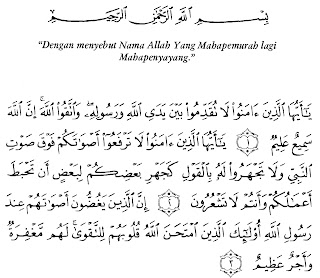 بِسْمِ اللَّهِ الرَّحْمَٰنِ الرَّحِيمِ
“Dengan menyebut Nama Allah Yang Mahapemurah lagi
Mahapenyayang.”
يَٰٓأَيُّهَا الَّذِينَ ءَامَنُوا۟ لَا تُقَدِّمُوا۟ بَيْنَ يَدَىِ اللَّهِ وَرَسُولِهِۦ وَاتَّقُوا۟ اللَّهَ إِنَّ اللَّهَ
سَمِيعٌ عَلِيمٌ ۝١ يَٰٓأَيُّهَا الَّذِينَ ءَامَنُوا۟ لَا تَرْفَعُوٓا۟ أَصْوَٰتَكُمْ فَوْقَ صَوْتِ
النَّبِىِّ وَلَا تَجْهَرُوا۟ لَهُۥ بِالْقَوْلِ كَجَهْرِ بَعْضِكُمْ لِبَعْضٍ أَن تَحْبَطَ
أَعْمَٰلُكُمْ وَأَنتُمْ لَا تَشْعُرُونَ ۝٢ إِنَّ الَّذِينَ يَغُضُّونَ أَصْوَٰتَهُمْ عِندَ
رَسُولِ اللَّهِ أُو۟لَٰٓئِكَ الَّذِينَ امْتَحَنَ اللَّهُ قُلُوبَهُمْ لِلتَّقْوَىٰ لَهُم مَّغْفِرَةٌ
وَأَجْرٌ عَظِيمٌ ۝٣